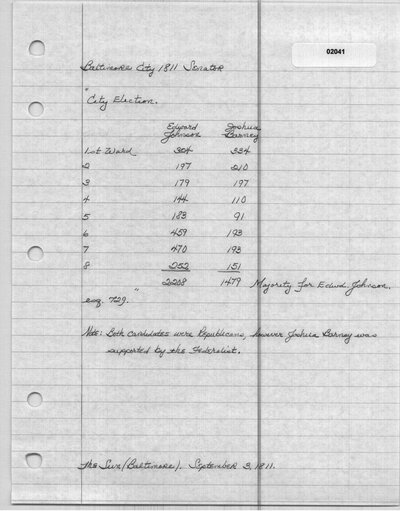 02041
Baltimore City 1811 Senator
"City Election.
Edward Johnson Joshua Barney
1st Ward 324 334
2 197 210
3 179 197
4 144 110
5 183 91
6 459 193
7 470 193
8 252 151
2208 1479 Majority for Edwd. Johnson,
esq. 729."
Note: Both candidates were Republicans, however Joshua Barney was
supported by the Federalist.
The Sun (Baltimore). September 3, 1811.